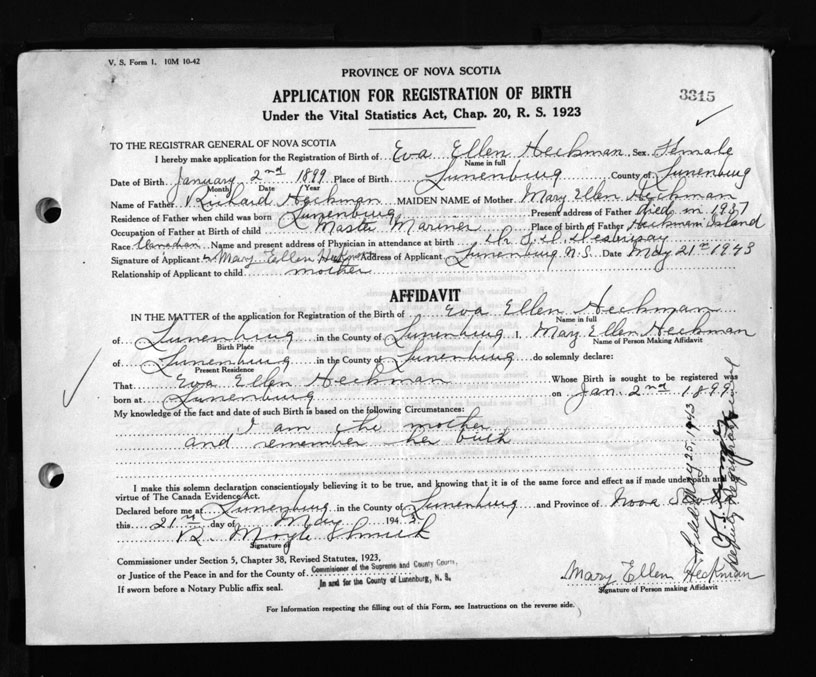 V. S. Form 1. 10M 10-42
PROVINCE OF NOVA SCOTIA
APPLICATION FOR REGISTRATION OF BIRTH
3315
Under the Vital Statistics Act, Chap. 20, R. S. 1923
TO THE REGISTRAR GENERAL OF NOVA SCOTIA
I hereby make application for the Registration of Birth of Eva Ellen Heckman Sex Female
Name in full
Date of Birth January 2nd 1899 Place of Birth Lunenburg County of Lunenburg
Month Date Year
Name of Father Richard Heckman MAIDEN NAME of Mother Mary Ellen Heckman
Residence of Father when child was born Lunenburg Present address of Father died in 1937
Occupation of Father at Birth of child Master Mariner Place of birth of Father Heckman Island
Race Canadian Name and present address of Physician in attendance at birth Dr.
Signature of Applicant Mary Ellen Heckman Address of Applicant Lunenburg N.S. Date May 21st 1943
Relationship of Applicant to child mother
AFFIDAVIT
IN THE MATTER of the application for Registration of the Birth of Eva Ellen Heckman
Name in full
of Lunenburg in the County of Lunenburg I, Mary Ellen Heckman
Birth Place Name of Person Making Affidavit
of Lunenburg in the County of Lunenburg do solemnly declare:
Present Residence
That Eva Ellen Heckman Whose Birth is sought to be registered was
born at Lunenburg on Jan. 2nd 1899
My knowledge of the fact and date of such Birth is based on the following Circumstances:
I am the mother
and remember her birth
I make this solemn declaration conscientiously believing it to be true, and knowing that it is of the same force and effect as if made under oath and
virtue of The Canada Evidence Act.
Declared before me at Lunenburg in the County of Lunenburg and Province of Nova Scotia
this 21st day of May 1943
Signature of
Commissioner under Section 5, Chapter 38, Revised Statutes, 1923,
or Justice of the Peace in and for the County of Commissioner of the Supreme and County Courts,
If sworn before a Notary Public affix seal. In and for the County of Lunenburg, N. S.
Mary Ellen Heckman
Signature of Person making Affidavit
For Information respecting the filling out of this Form, see Instructions on the reverse side.
Filed May 25, 1943
Deputy Registrar General